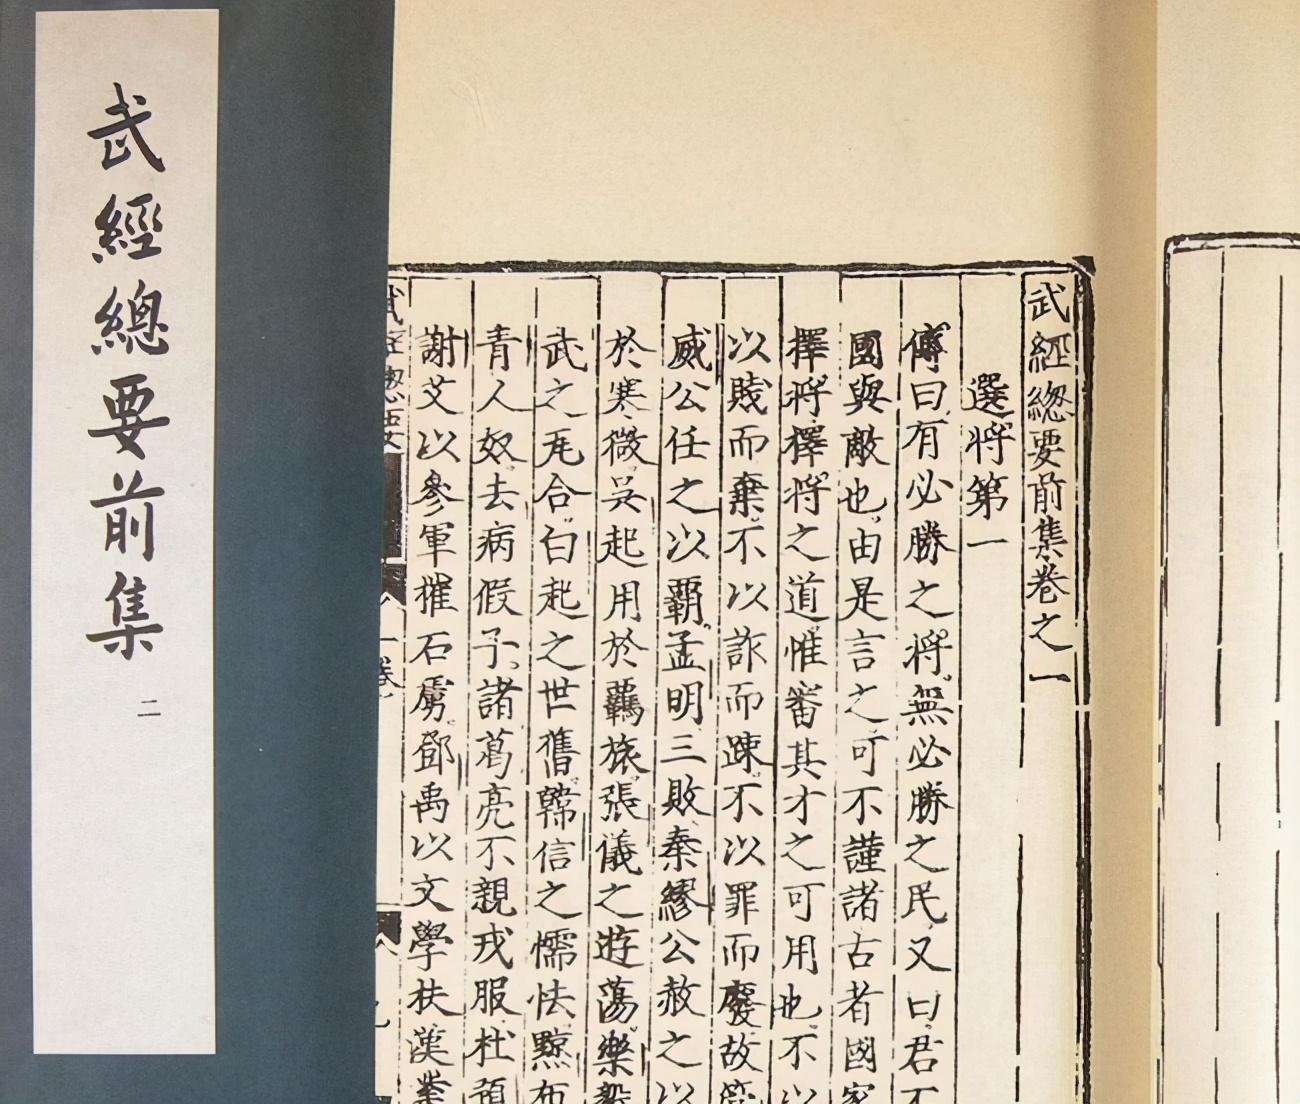 武經總要前集
二
武經緫要前集卷之一
選將第一
傅曰有必勝之將無必勝之民又曰君不
國與敵也由是言之可不謹諸古者國家
擇將擇將之道惟審其才之可用也不以
以賤而棄不以詐而踈不以罪而廢故管
威公任之以覇孟明三敗秦繆公赦之以
於寒微吳起用於羈旅張儀之遊蕩樂毅
武之瓦合白起之世舊韓信之懦怯黥布
青人奴去病假子諸葛亮不親戎服杜預
謝艾以參軍摧石虜鄧禹以文學扶漢業